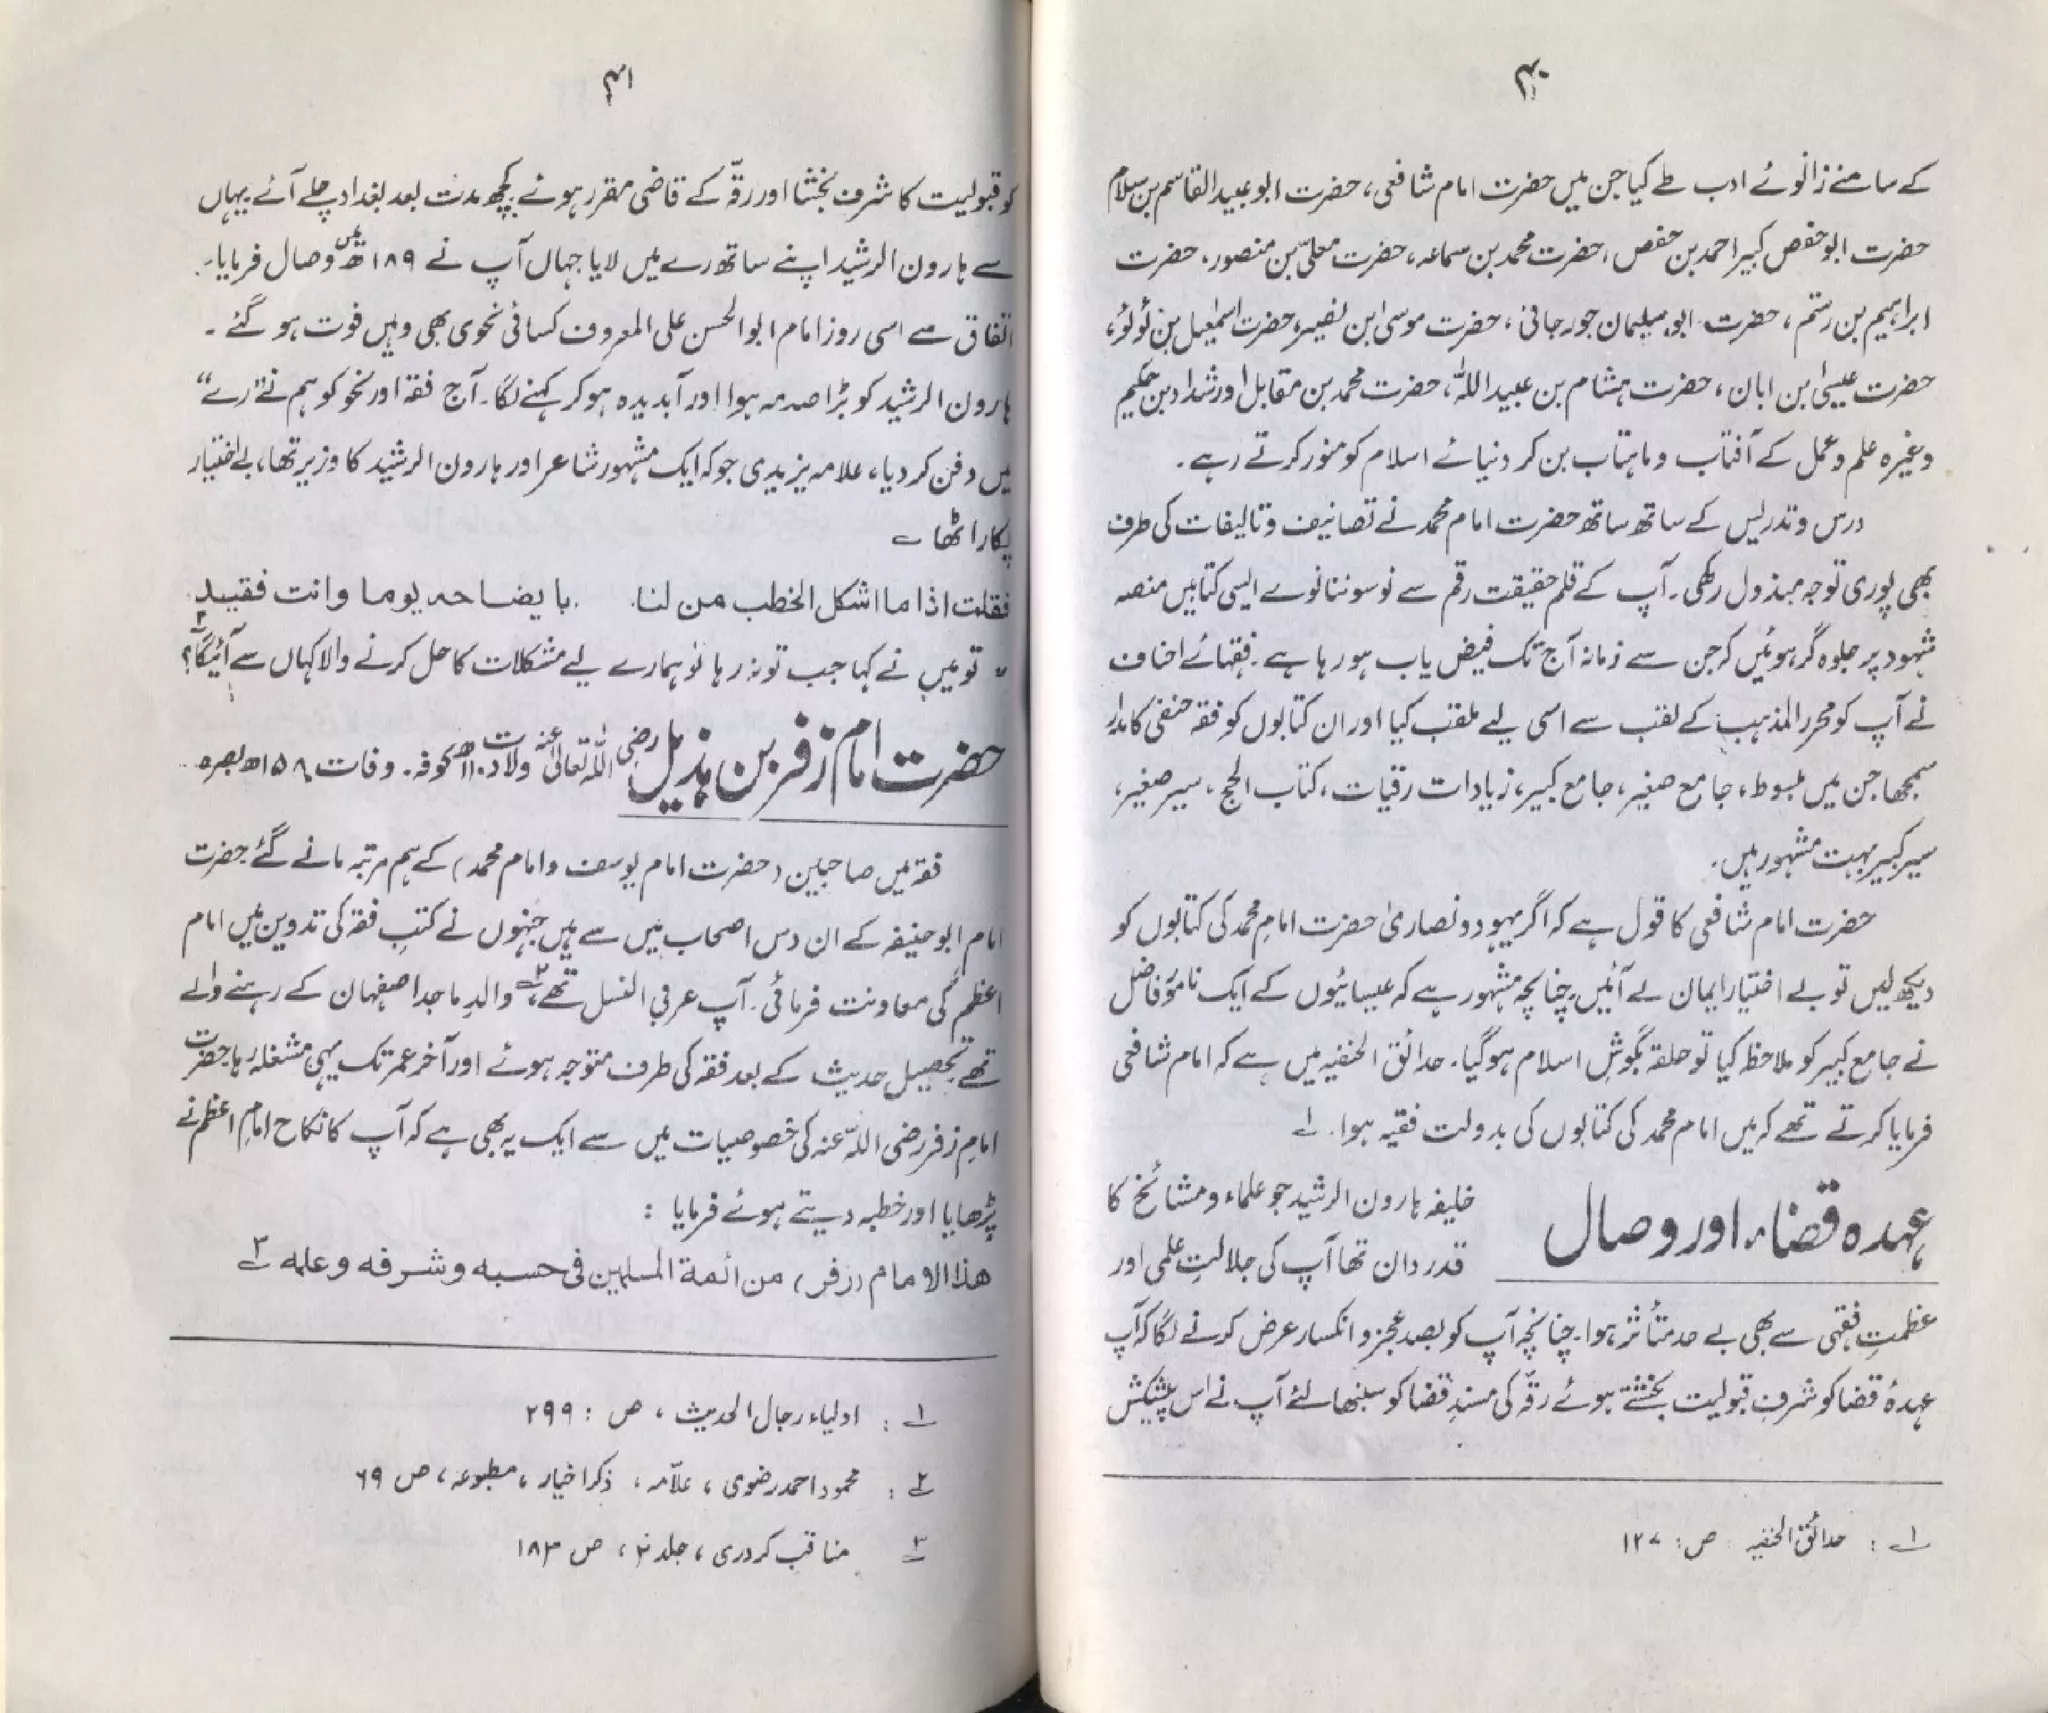 ۴۰
کے سامنے زانوئے ادب طے کیا جن میں حضرت امام شافعی، حضرت ابو عبید القاسم بن سلام
حضرت ابو حفص کبیر احمد بن حفص، حضرت محمد بن سماعہ، حضرت معلیٰ بن منصور، حضرت
ابراہیم بن رستم، حضرت ابو سلیمان جورجانی، حضرت موسیٰ ابن نصیر، حضرت اسمٰعیل بن لُولُو،
حضرت عیسیٰ ابن ابان، حضرت ہشام بن عبید اللہ، حضرت محمد بن مقابل اور شداد بن حکیم
وغیرہ علم و عمل کے آفتاب و ماہتاب بن کر دنیائے اسلام کو منور کرتے رہے۔
درس و تدریس کے ساتھ ساتھ حضرت امام محمد نے تصانیف و تالیفات کی طرف
بھی پوری توجہ مبذول رکھی۔ آپ کے قلم حقیقت رقم سے نو سو ننانوے ایسی کتابیں منصہ
شہود پر جلوہ گر ہوئیں کہ جن سے زمانہ آج تک فیض یاب ہو رہا ہے۔ فقہائے احناف
نے آپ کو محرر المذہب کے لقب سے اسی لیے ملقب کیا اور ان کتابوں کو فقہ حنفی کا مدار
سمجھا جن میں مبسوط، جامع صغیر، جامع کبیر، زیادات رقیات، کتاب الحج، سیر صغیر،
سیر کبیر بہت مشہور ہیں۔
حضرت امام شافعی کا قول ہے کہ اگر یہود و نصاریٰ حضرت امام محمد کی کتابوں کو
دیکھ لیں تو بے اختیار ایمان لے آئیں۔ چنانچہ مشہور ہے کہ عیسائیوں کے ایک نامور فاضل
نے جامع کبیر کو ملاحظہ کیا تو حلقہ بگوشِ اسلام ہو گیا۔ حدائق الحنفیہ میں ہے کہ امام شافعی
فرمایا کرتے تھے کہ میں امام محمد کی کتابوں کی بدولت فقیہ ہوا۔ ۱؎
عہدہ قضاء اور وصال
خلیفہ ہارون الرشید جو علماء و مشائخ کا
قدردان تھا آپ کی جلالتِ علمی اور
عظمتِ فقہی سے بھی بے حد متأثر ہوا۔ چنانچہ آپ کو بصد عجز و انکسار عرض کرنے لگا کہ آپ
عہدۂ قضا کو شرفِ قبولیت بخشتے ہوئے رقّہ کی مسندِ قضا کو سنبھالئے آپ نے اس پیشکش
۱؎ : حدائق الحنفیہ ص: ۱۲۷
۴۱
کو قبولیت کا شرف بخشا اور رقّہ کے قاضی مقرر ہوئے کچھ مدت بعد بغداد چلے آئے یہاں
سے ہارون الرشید اپنے ساتھ رے میں لایا جہاں آپ نے ۱۸۹ھ میں وصال فرمایا۔
اتفاق سے اسی روز امام ابو الحسن علی المعروف کسائی نحوی بھی وہیں فوت ہو گئے۔
ہارون الرشید کو بڑا صدمہ ہوا اور آبدیدہ ہو کر کہنے لگا۔ آج فقہ اور نحو کو ہم نے رے “
میں دفن کر دیا، علامہ یزیدی جو کہ ایک مشہور شاعر اور ہارون الرشید کا وزیر تھا، بے اختیار
پکار اٹھا ؎
فقلت اذا ما اشکل الخطب من لنا . بایضاحہ یوما وانت فقید
تو میں نے کہا جب تو نہ رہا تو ہمارے لیے مشکلات کا حل کرنے والا کہاں سے آئیگا؟
حضرت امام زفر بن ہذیل رضی اللہ تعالیٰ عنہ ولادت ۱۱۰ھ کوفہ۔ وفات ۱۵۸ھ بصرہ
فقہ میں صاحبین (حضرت امام یوسف و امام محمد) کے ہم مرتبہ مانے گئے حضرت
امام ابو حنیفہ کے ان دس اصحاب میں سے ہیں جنہوں نے کتبِ فقہ کی تدوین میں امام
اعظم کی معاونت فرمائی۔ آپ عربی النسل تھے،۲؎ والدِ ماجد اصفہان کے رہنے والے
تھے تحصیل حدیث کے بعد فقہ کی طرف متوجہ ہوئے اور آخر عمر تک یہی مشغلہ رہا حضرت
امامِ زفر رضی اللہ عنہ کی خصوصیات میں سے ایک یہ بھی ہے کہ آپ کا نکاح امامِ اعظم نے
پڑھایا اور خطبہ دیتے ہوئے فرمایا :
ھذا الامام (زفر) من ائمة المسلمین فی حسبه وشرفه وعلمه ۳؎
۱؎ : اولیاء رجال الحدیث ، ص : ۲۹۹
۲؎ : محمود احمد رضوی ، علّامہ ، ذکر اخیار ، مطبوعہ ، ص ۶۹
۳؎ مناقب کردری ، جلد ۲ ، ص ۱۸۳